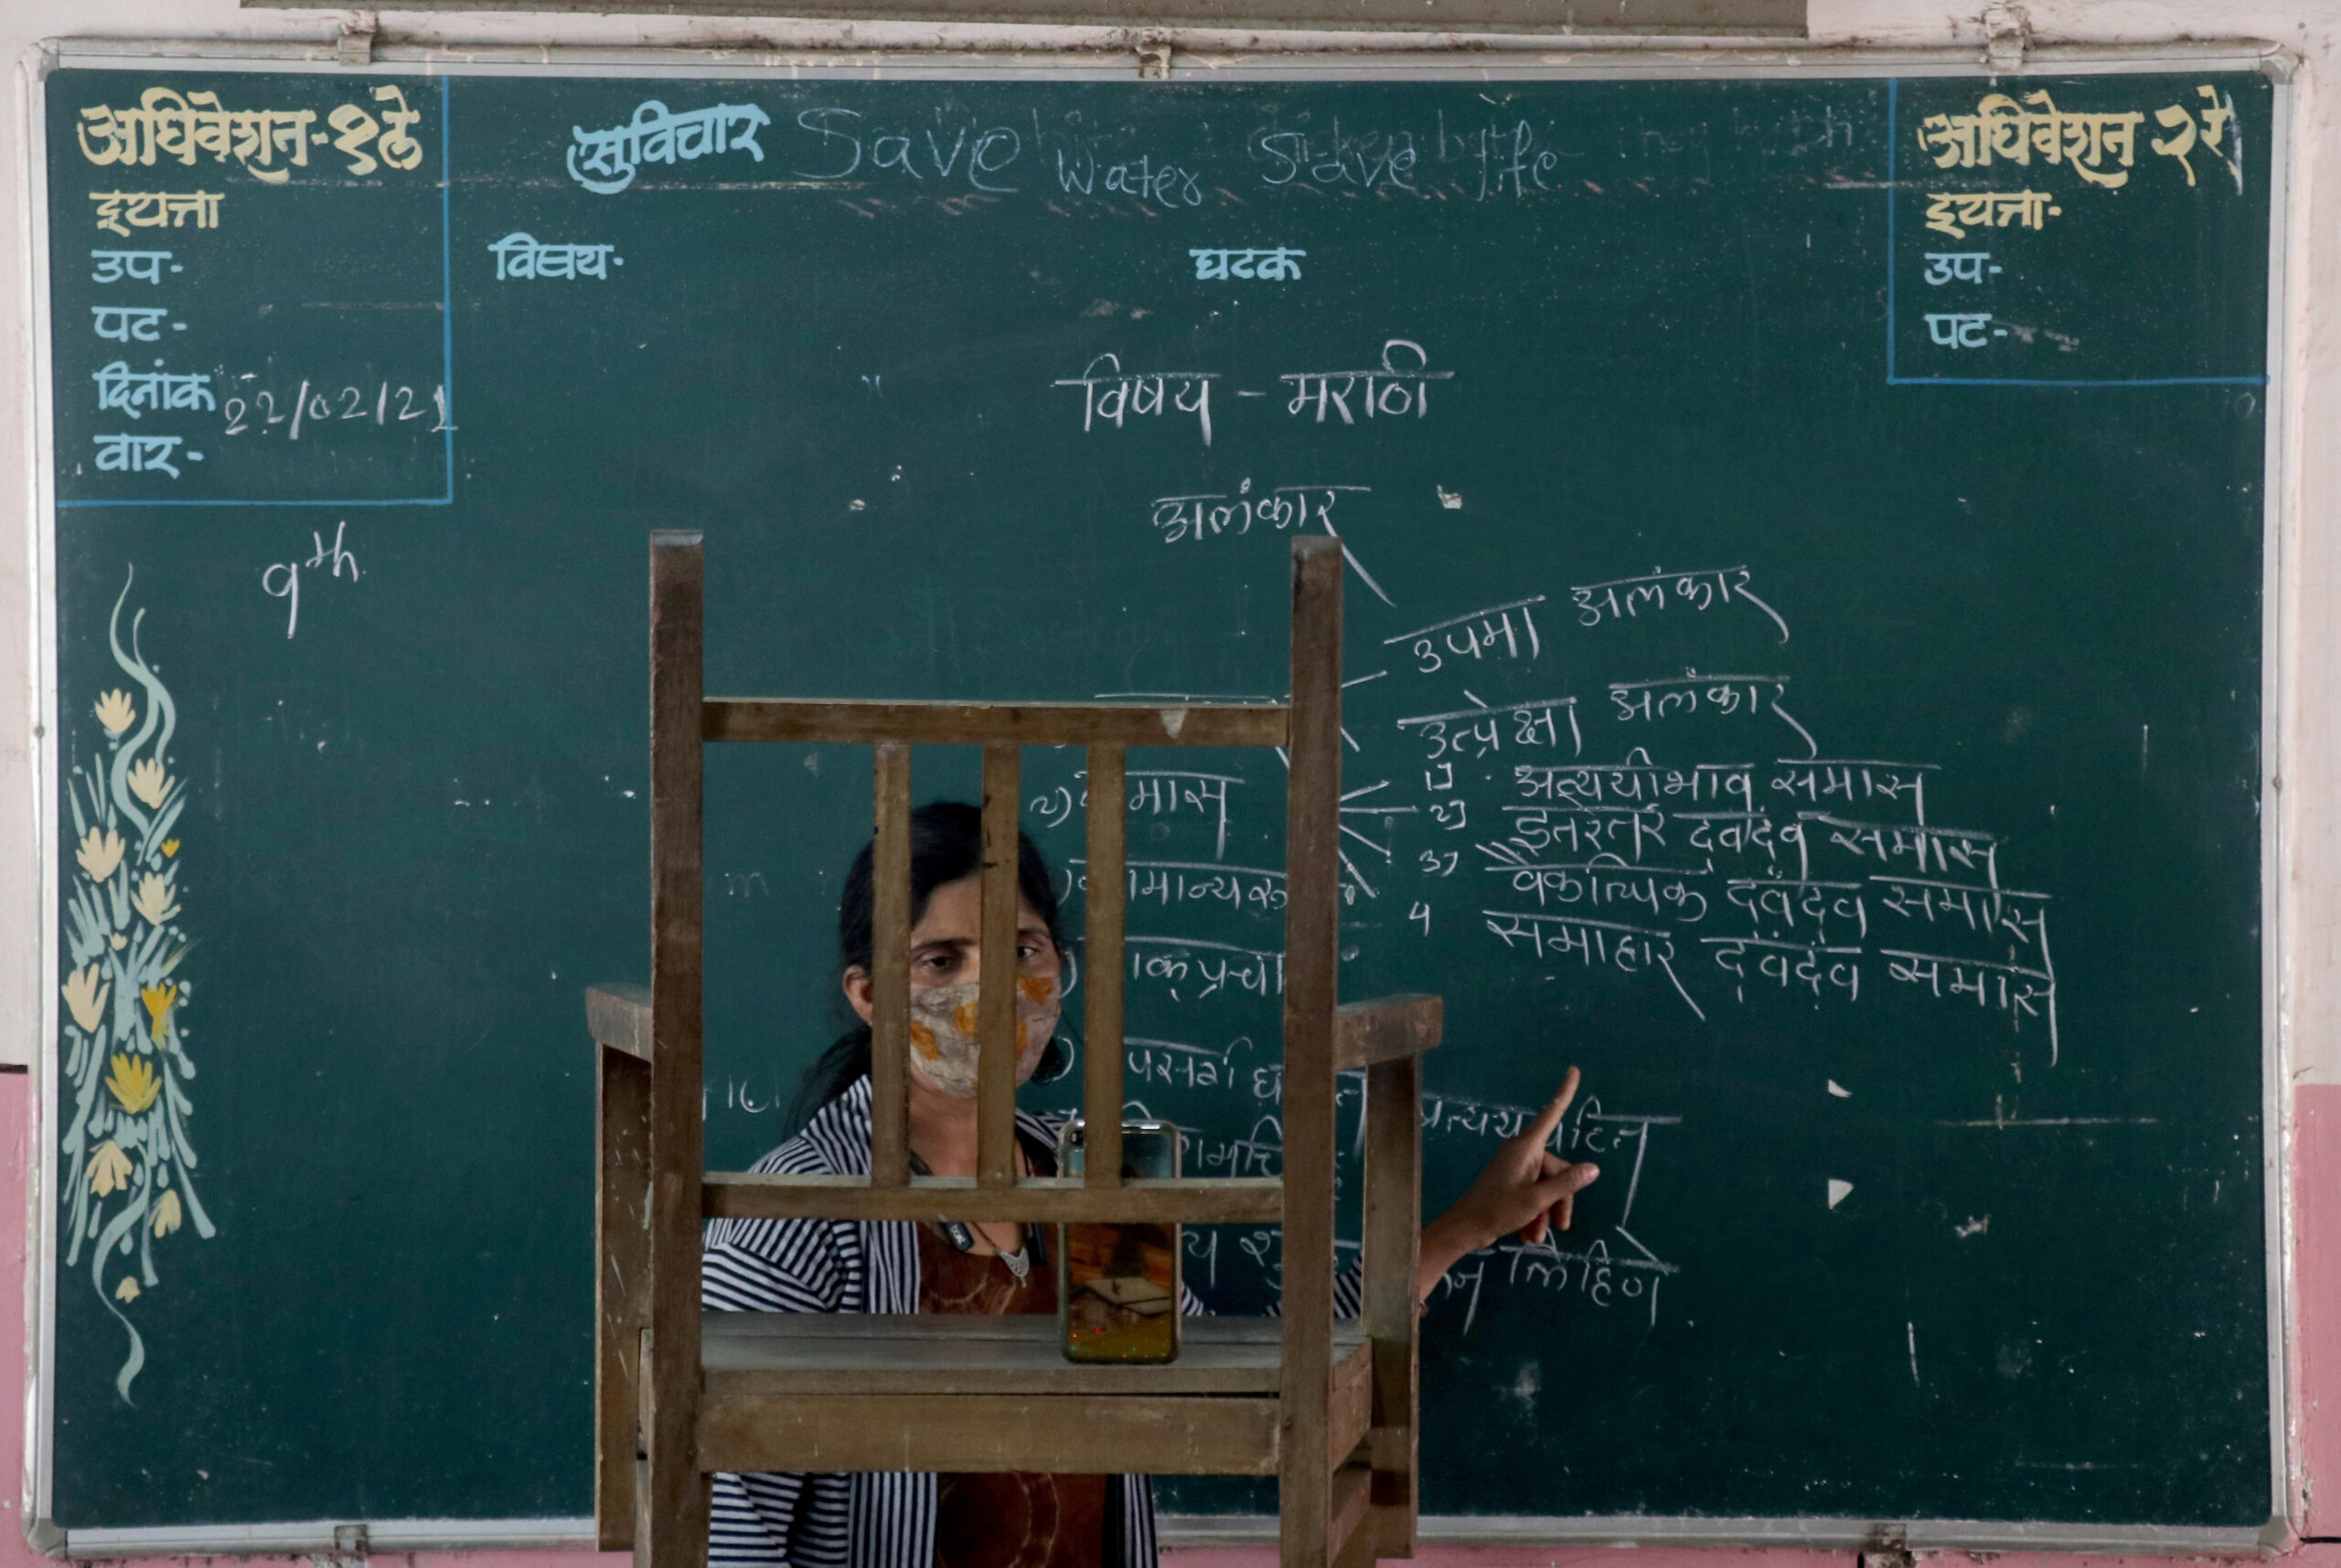 अधिवेशन-१ले
इयत्ता
उप-
पट-
दिनांक 22/02/21
वार-
9th
सुविचार Save Water Save life
विषय-
घटक
अधिवेशन २रे
इयत्ता-
उप-
पट-
विषय - मराठी
अलंकार
उपमा अलंकार
उत्प्रेक्षा अलंकार
२) मास
1] अव्ययीभाव समास
2] इतरेतर द्वंद्व समास
3) वैकल्पिक द्वंद्व समास
4 समाहार द्वंद्व समास
मान्यरू
ाक्प्रचा
पसर्ग घ
प्रत्यय
लिहिणे